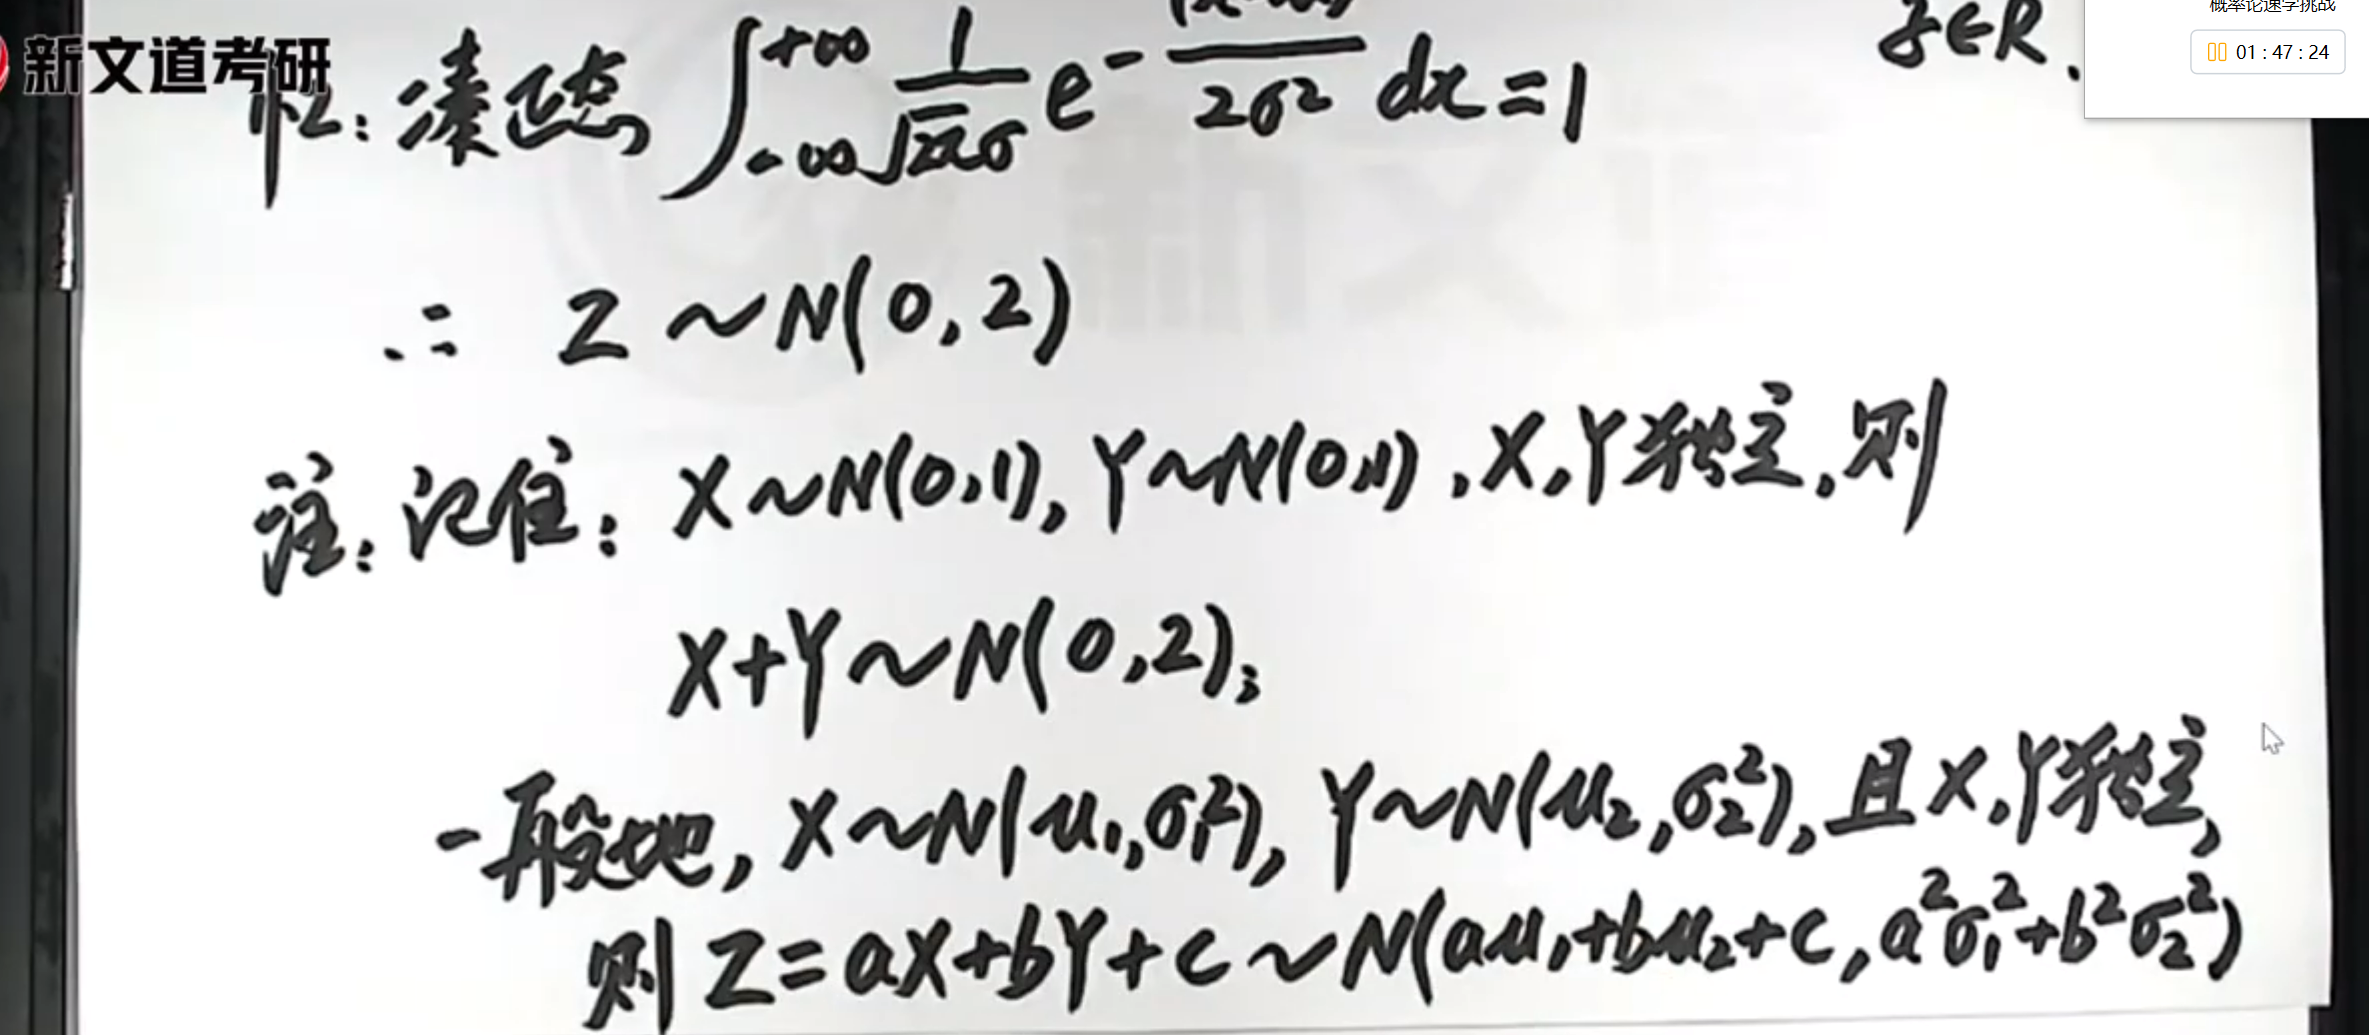 概率论速学挑战
01:47:24
新文道考研
z∈R.
法2:凑正态 ∫_{-∞}^{+∞} 1/(√2π σ) e^{-(x-μ)²/2σ²} dx=1
∴ Z~N(0,2)
注:记住:X~N(0,1),Y~N(0,1),X,Y独立,则
X+Y~N(0,2);
一般地,X~N(μ₁,σ₁²),Y~N(μ₂,σ₂²),且X,Y独立,
则Z=aX+bY+c~N(aμ₁+bμ₂+c,a²σ₁²+b²σ₂²)